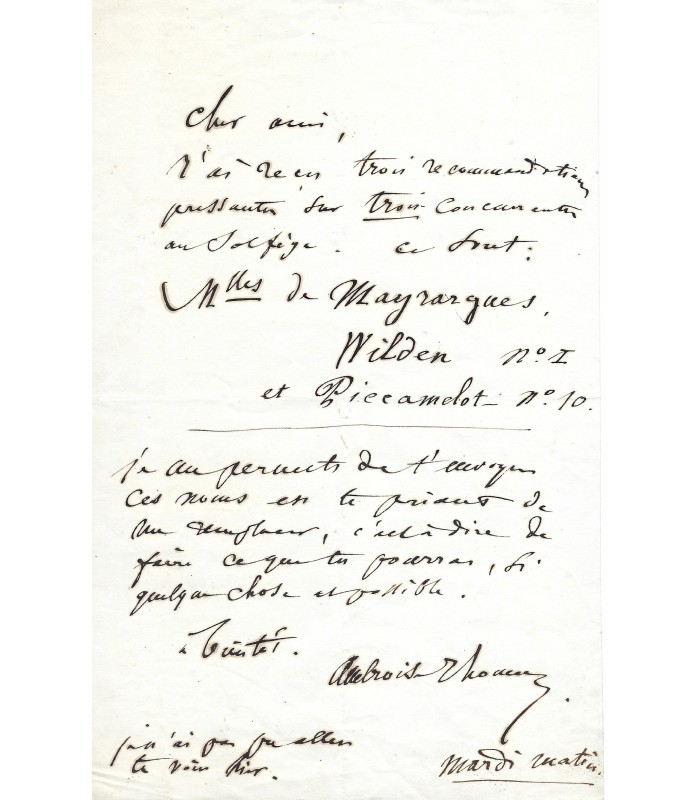 Cher ami,
J'ai reçu trois recommandations
pressantes sur trois concurrentes
au Solfège. Ce sont:
Mlles de Mayrargues,
Wilden n° I
et Piccamelot n° 10.
je me permets de t'envoyer
ces noms en te priant de
me remplacer, c'est à dire de
faire ce que tu pourras, si
quelque chose est possible.
à bientôt.
Ambroise Thomas
je n'ai pas pu aller
te voir hier.
mardi matin.